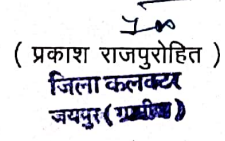 ( प्रकाश राजपुरोहित )
जिला कलक्टर
जयपुर (ग्रामीण)